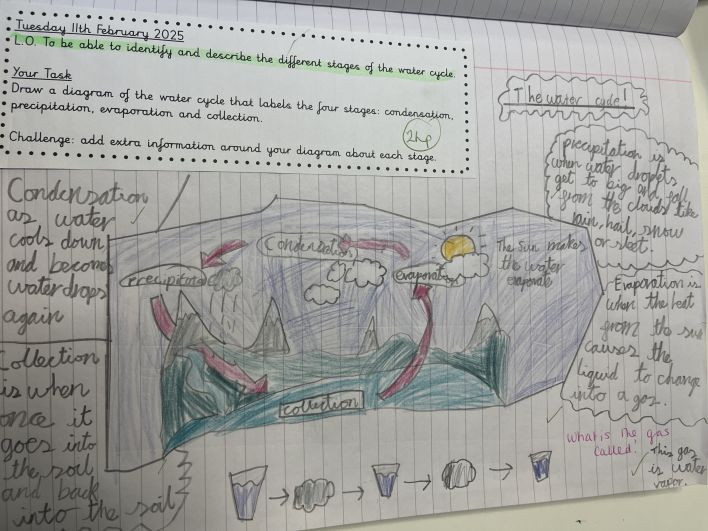 Tuesday 11th February 2025
L.O. To be able to identify and describe the different stages of the water cycle.
Your Task
Draw a diagram of the water cycle that labels the four stages: condensation,
precipitation, evaporation and collection.
2hp
Challenge: add extra information around your diagram about each stage.
The water cycle!
Precipitation is
when water droplets
get to big and fall
from the clouds like
rain, hail, snow
or sleet.
Condensation
as water
cools down
and becoms
waterdrops
again
Condensation
The Sun makes
the water
evaporate
Precipitation
evaporation
Evaporation is
when the heat
from the sun
causes the
liquid to change
into a gas.
Collection
is when
once it
goes into
the soil
and back
into the soil
collection
What is the gas
called?
This gas
is water
vapor.